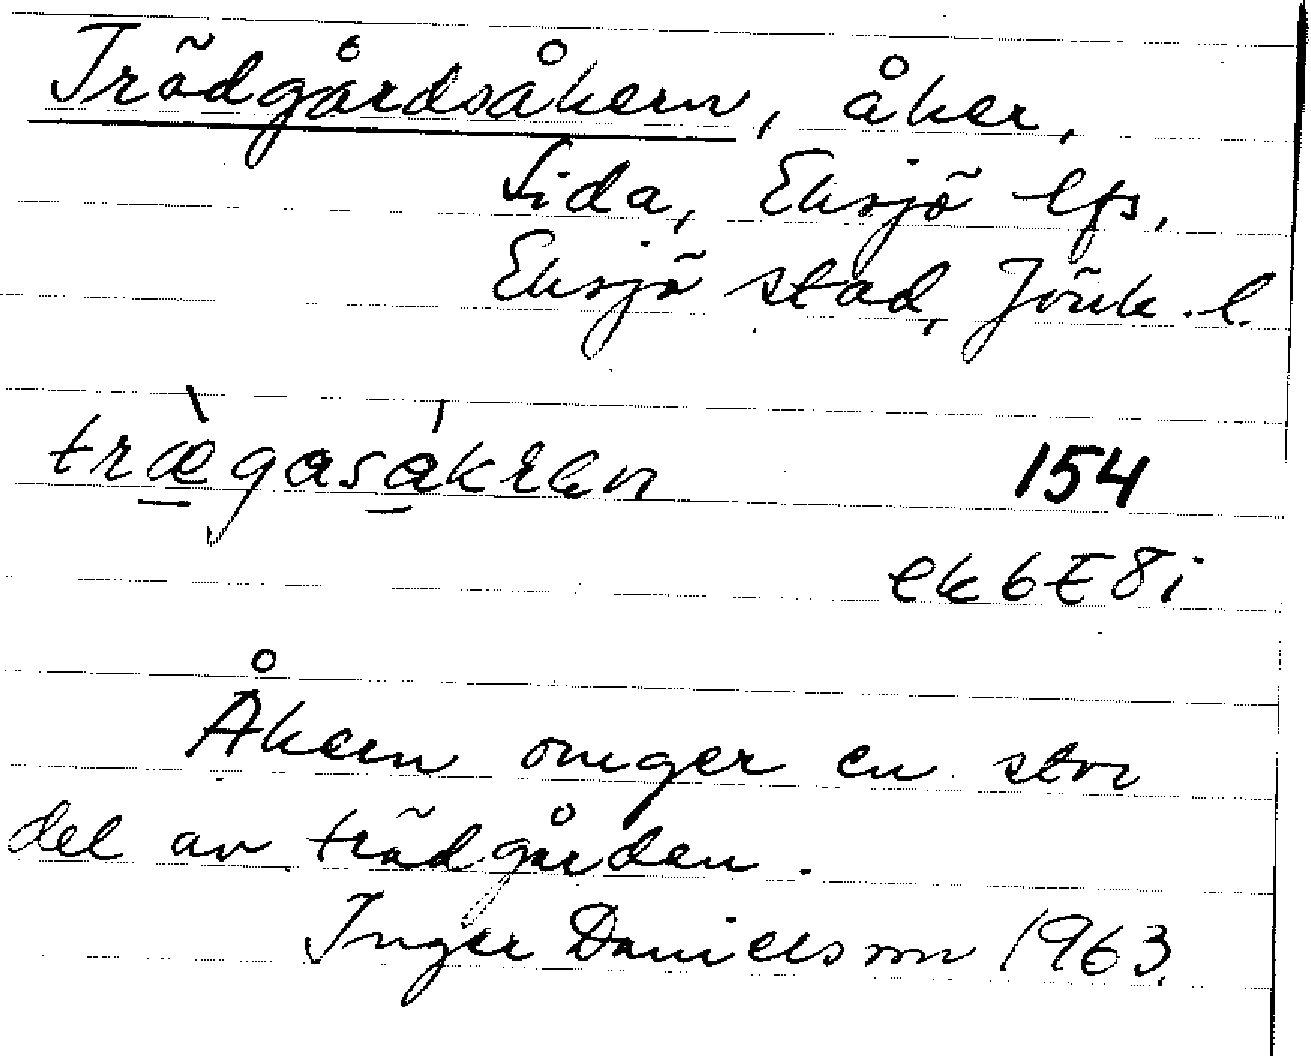 Trädgårdsåkern, åker,
Sida, Eksjö lfs,
Eksjö stad, Jönk. l.
træ̀gasákren 154
ek 6E8i
Åkern omger en stor
del av trädgården.
Inger Danielsson 1963